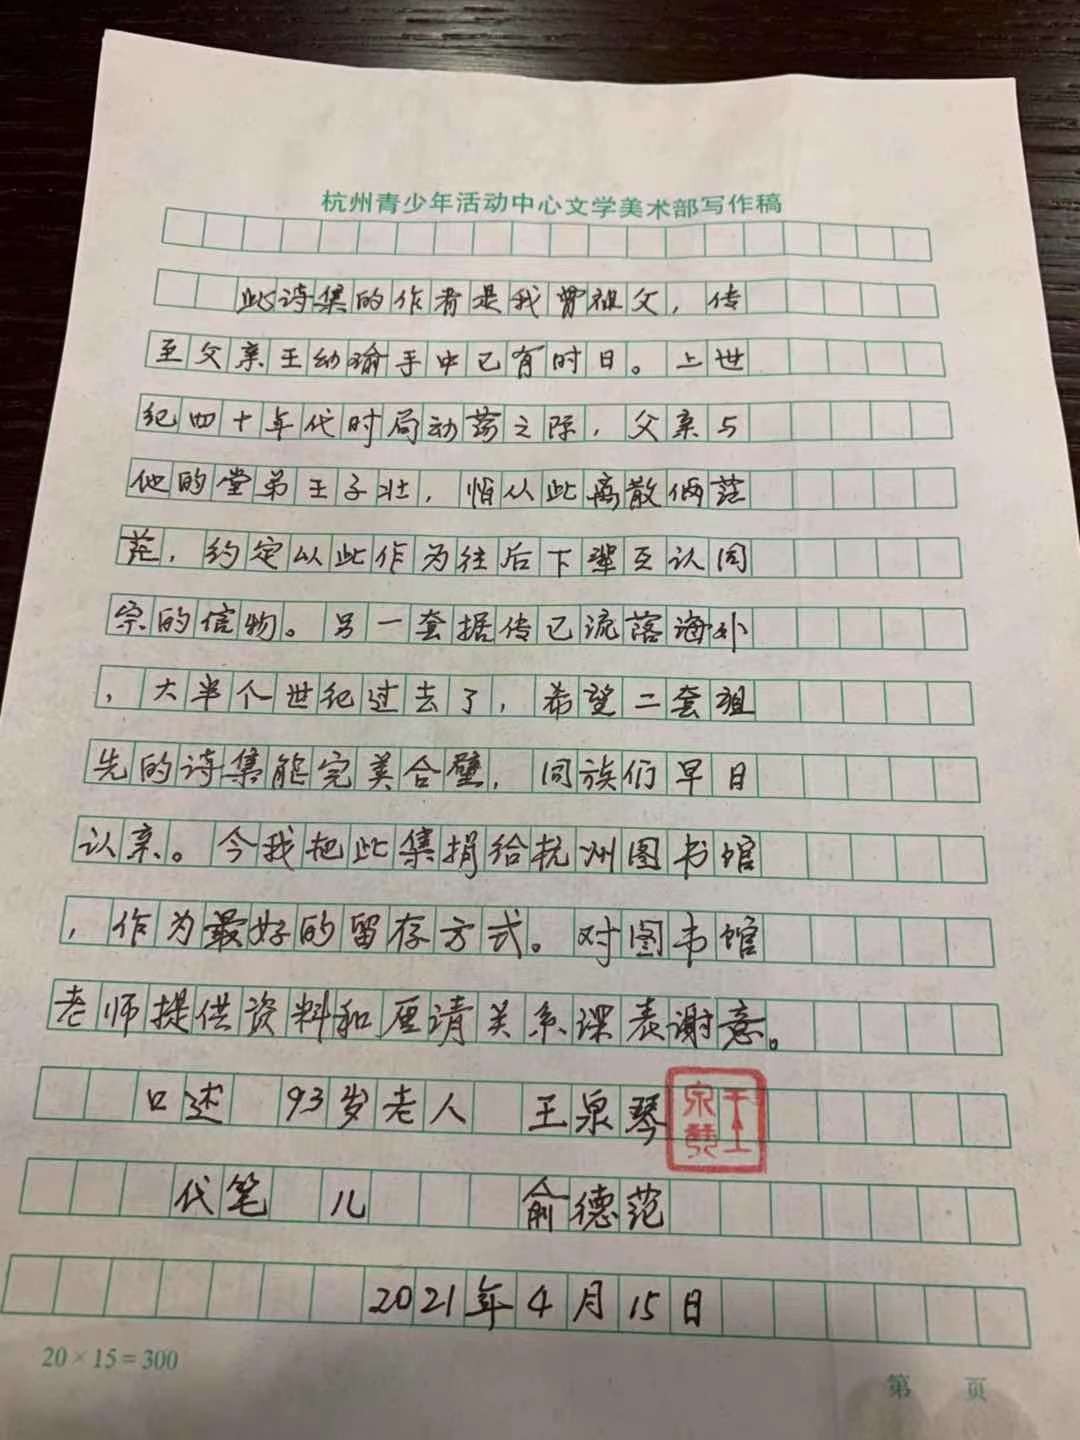 杭州青少年活动中心文学美术部写作稿
此诗集的作者是我曾祖父，传
至父亲王幼瑜手中已有时日。上世
纪四十年代时局动荡之际，父亲与
他的堂弟王子壮，怕从此离散两茫
茫，约定以此作为往后下辈互认同
宗的信物。另一套据传已流落海外
，大半个世纪过去了，希望二套祖
先的诗集能完美合璧，同族们早日
认亲。今我把此集捐给杭州图书馆
，作为最好的留存方式。对图书馆
老师提供资料和厘请关系深表谢意。
口述 93岁老人 王泉琴
代笔 儿 俞德范
2021年4月15日
20×15=300
第 页